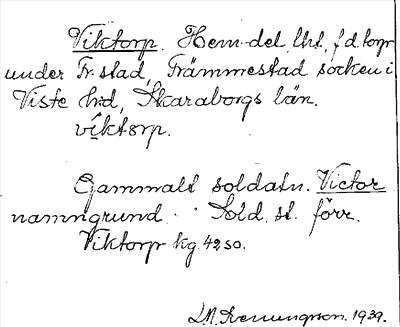 Viktorp. Hem.del, lht, f.d. torp
under Fr-stad, Främmestad socken i
Viste hd, Skaraborgs län.
víktɔrp.
Gammalt soldatn. Victor
namngrund. Sold. st. förr.
Viktorp kg. 4250.
1939.